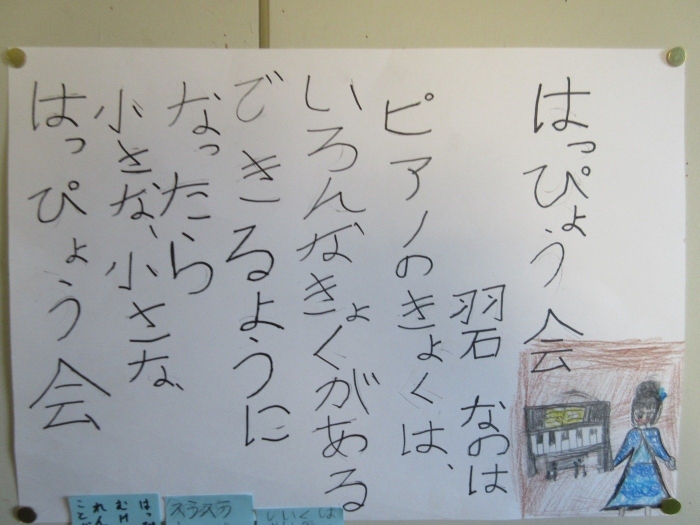 はっぴょう会
羽石 なのは
ピアノのきょくは、
いろんなきょくがある
できるように
なったら
小さな、小さな、
はっぴょう会
スラスラ